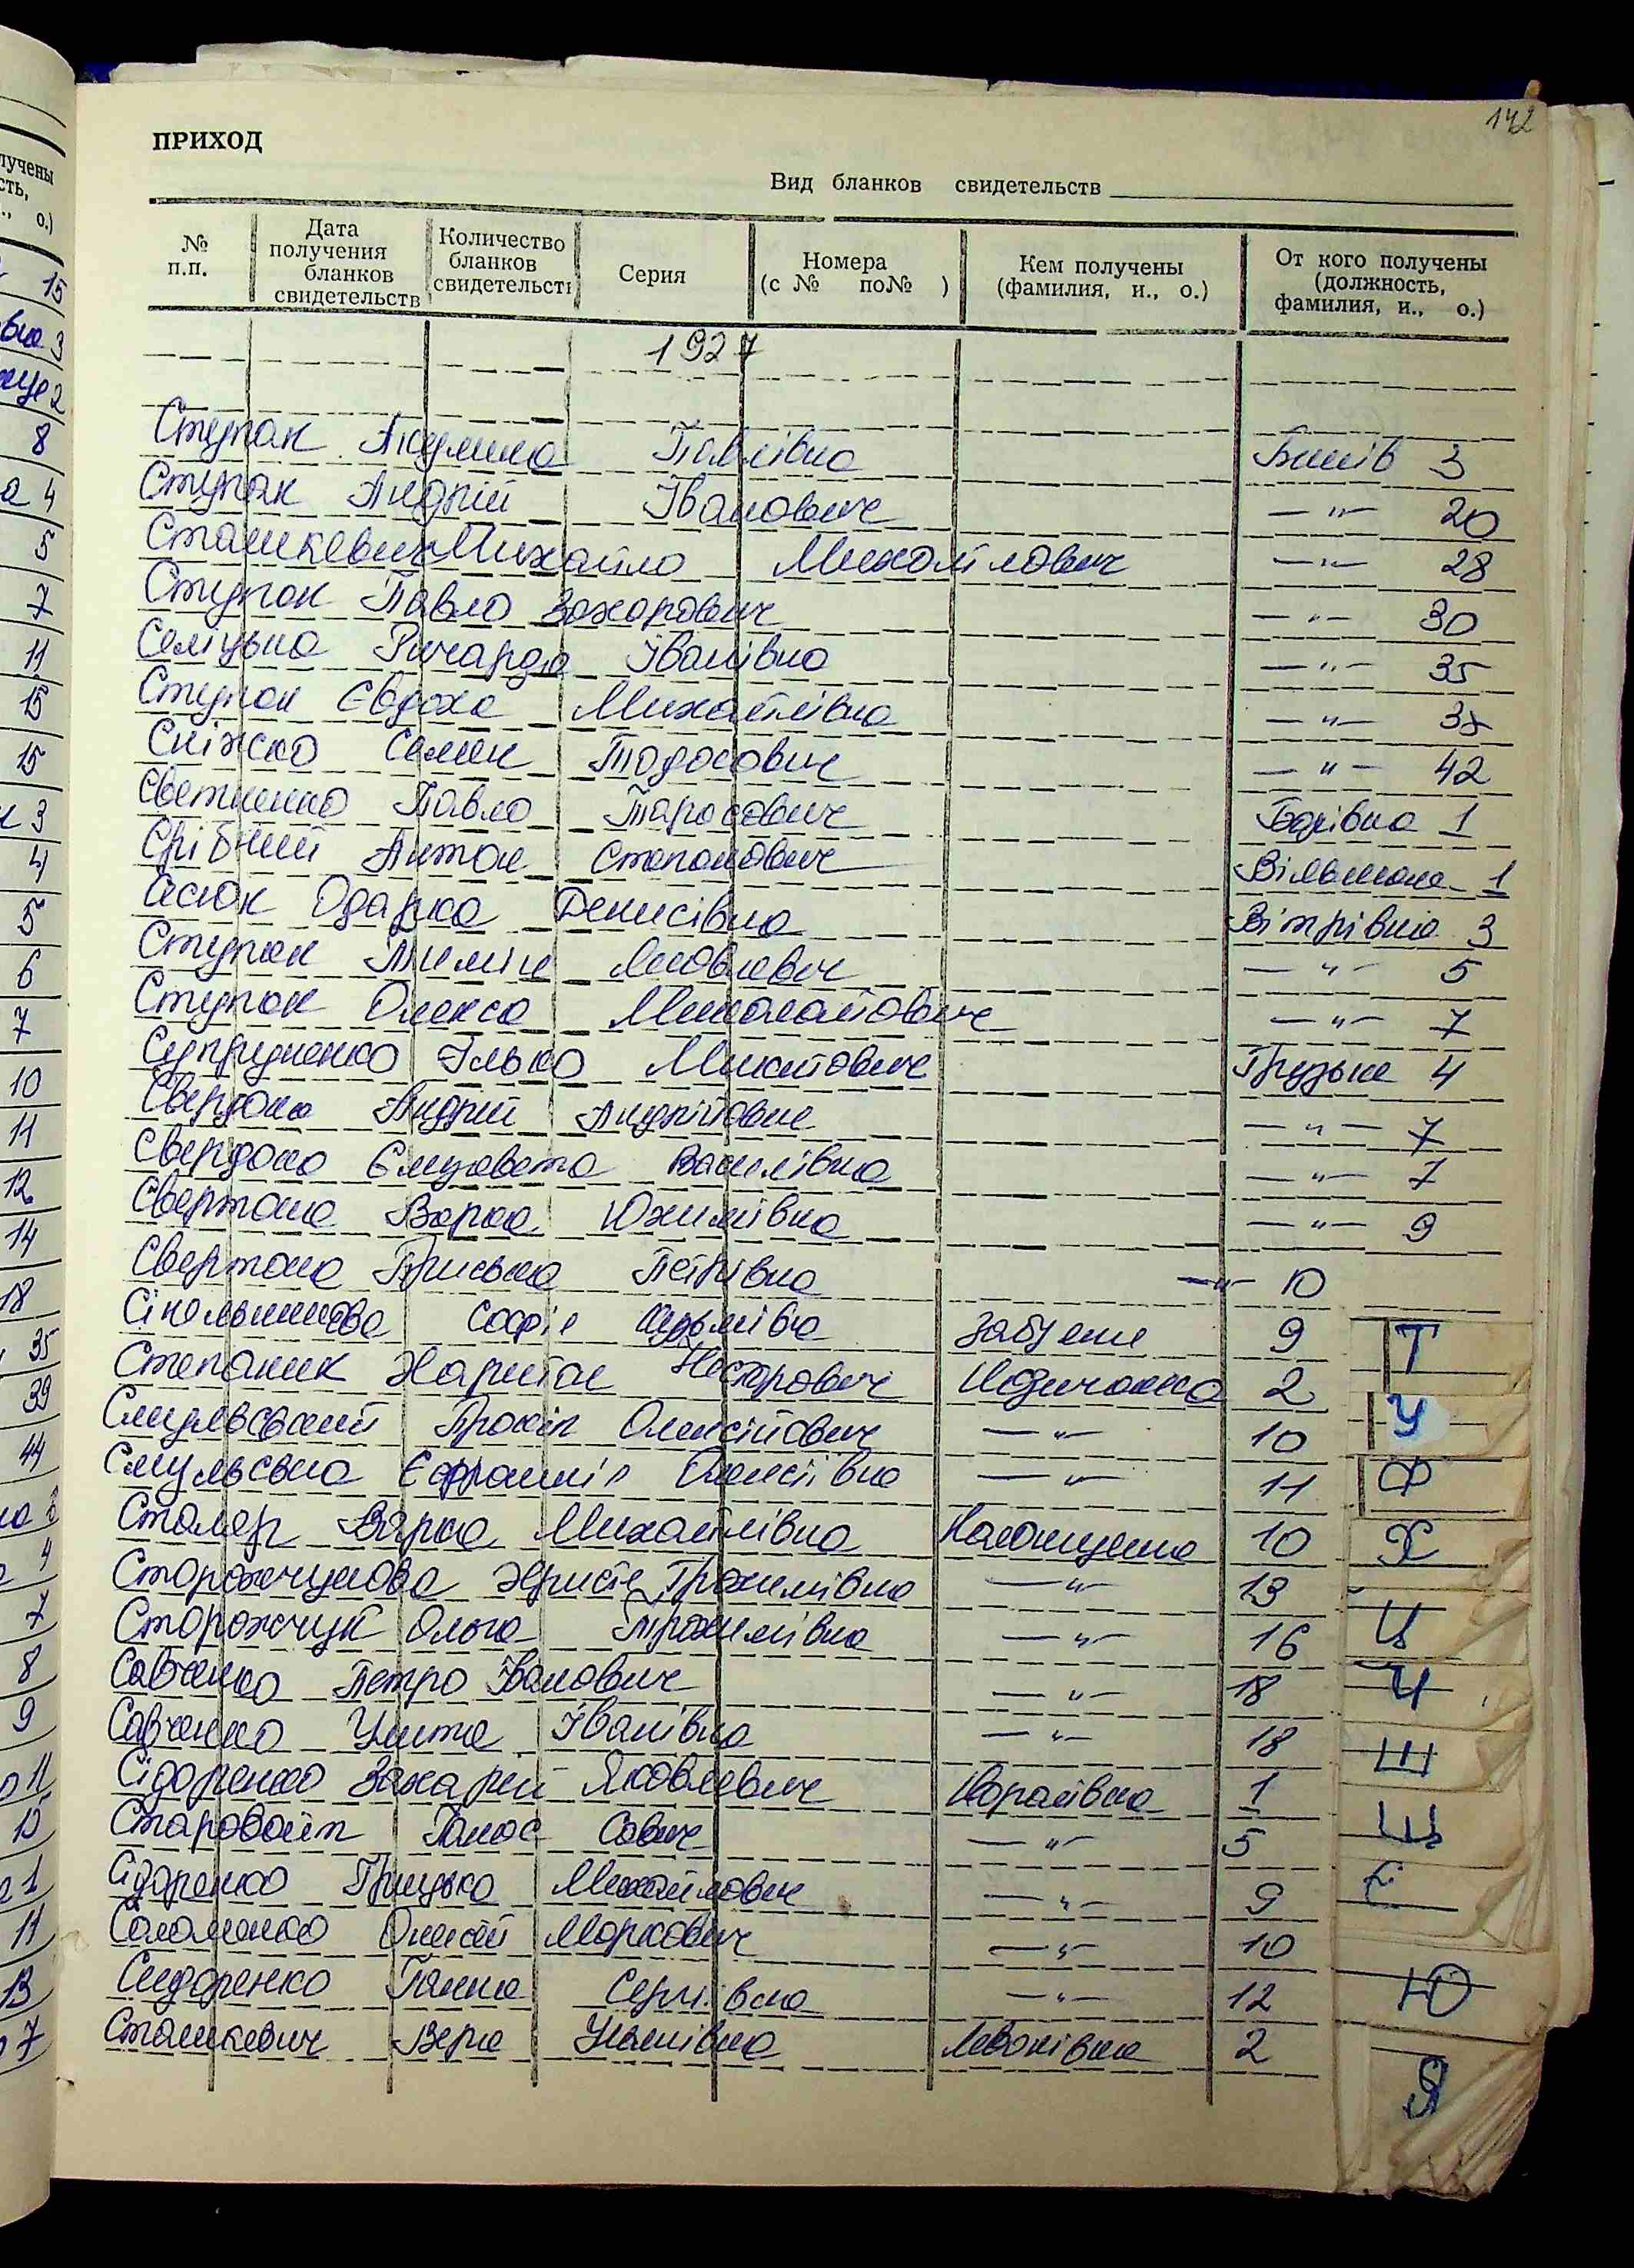 142
ПРИХОД
Вид бланков свидетельств
№ п.п.
Дата получения бланков свидетельств
Количество бланков свидетельств
Серия
Номера (с № по№ )
Кем получены (фамилия, и., о.)
От кого получены (должность, фамилия, и., о.)
1927
Ступак Павлівна 3
Ступак Андрій Іванович —"— 20
Сташкевич Михайло Михайлович —"— 28
Ступак Павло Захарович —"— 30
Ричарда Іванівна —"— 35
Ступак Євдоха Михайлівна —"—
Сніжко Семен Тодосович —"— 42
Павло Тарасович 1
Срібний Антон Степанович Вільшана 1
Асюк Одарка Денисівна Вітрівка 3
Ступак Тиміш Яковлевич —"— 5
Ступак Олекса Миколайович —"— 7
Супруненко Ілько Микитович Грузьке 4
Андрій Андрійович —"— 7
Єлизавета Василівна —"— 7
Варка Юхимівна —"— 9
Приська Петрівна —"— 10
Софія Кузьмівна 9
Степанюк Харитон Несторович Козичанка 2
Смульський Прокіп Олексійович —"— 10
Смульська Єфросинія Олексіївна —"— 11
Столяр Варка Михайлівна 10
Сторожчукова Христя Трохимівна —"— 13
Сторожчук Ольга Трохимівна —"— 16
Савченко Петро Іванович —"— 18
Савченко Улита Іванівна —"— 18
Сідоренко Захарій Яковлевич 1
Старовойт Панас Савич —"— 5
Сідоренко Грицько Михайлович —"— 9
Соломенко Олексій Маркович —"— 10
Сидоренко Ганна Сергіївна —"— 12
Сташкевич Віра Леонівка 2
Т
У
Ф
Х
Ц
Ч
Ш
Щ
Є
Ю
Я